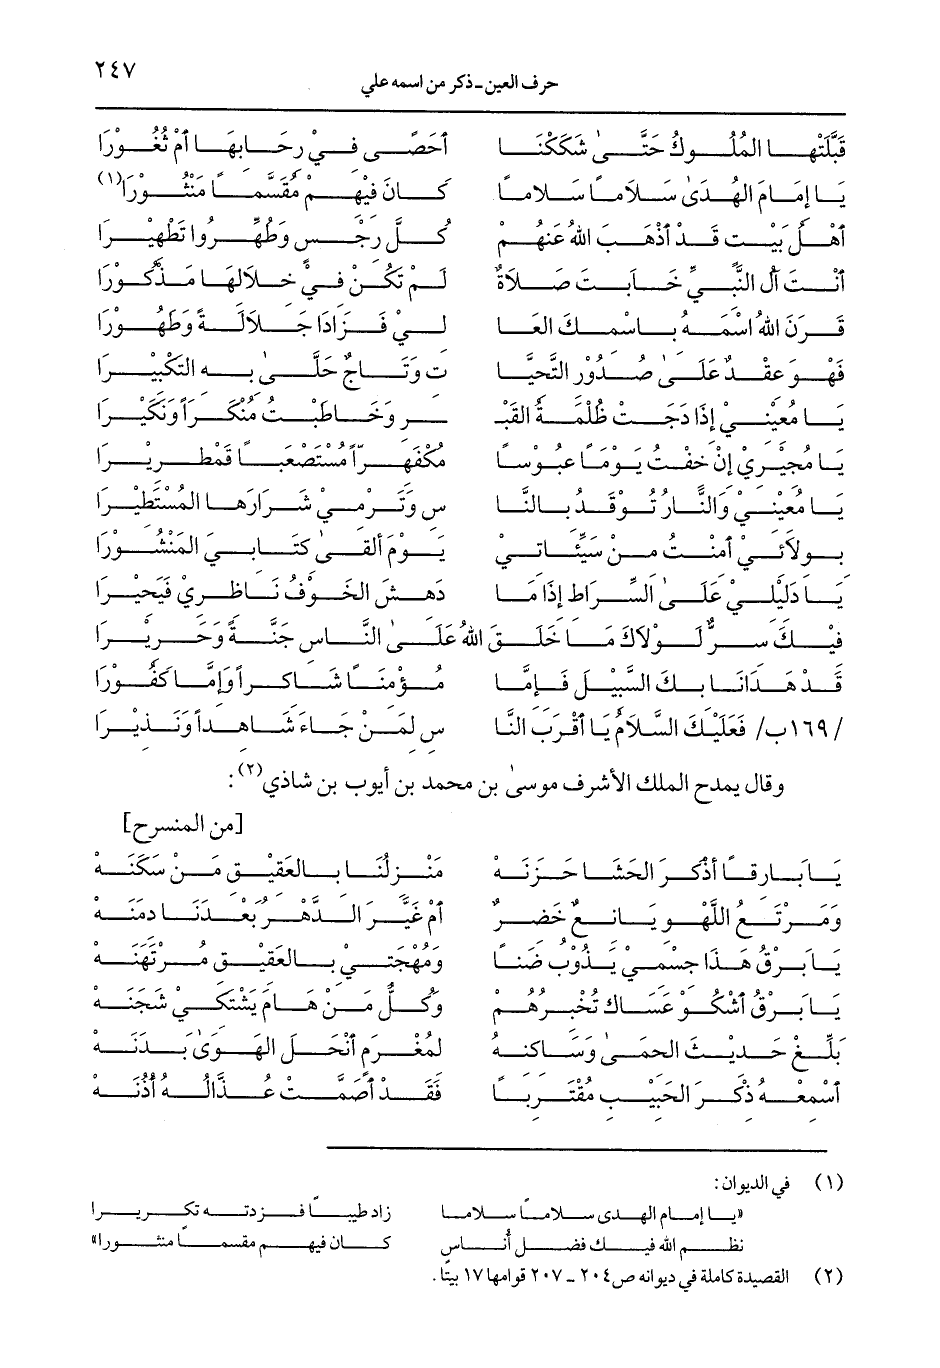 ٢٤٧
حرف العين ـ ذكر من اسمه علي
قَبَّلَتْهَا المُلُوكُ حَتَّىٰ شَكَكْنَا أَحَصًى فِيْ رِحَابِهَا أمْ ثُغُوْرَا
يَا إمَامَ الهُدَىٰ سَلَامًا سَلَامًا كَانَ فِيْهِمْ مُقَسَّمًا مَنْثُوْرَا(١)
أهْلُ بَيْتٍ قَدْ أذْهَبَ اللهُ عَنْهُمْ كُلَّ رِجْسٍ وَطُهِّرُوا تَطْهِيْرَا
أنْتَ آلُ النَّبِيِّ خَابَتْ صَلَاةٌ لَمْ تَكُنْ فِيْ خِلَالِهَا مَذْكُوْرَا
قَرَنَ اللهُ اسْمَهُ بِاسْمِكَ العَا لِيْ فَزَادَا جَلَالَةً وَطُهُوْرَا
فَهْوَ عِقْدٌ عَلَىٰ صُدُوْرِ التَّحِيَّا تِ وَتَاجٌ حَلَّىٰ بِهِ التَّكْبِيْرَا
يَا مُعِيْنِيْ إذَا دَجَتْ ظُلْمَةُ القَبْـ ـرِ وَخَاطَبْتُ مُنْكَرَاً وَنَكِيْرَا
يَا مُجِيْرِيْ إنْ خِفْتُ يَوْمَاً عَبُوْسَاً مُكْفَهِرَّاً مُسْتَصْعَبَاً قَمْطَرِيْرَا
يَا مُعِيْنِيْ وَالنَّارُ تُوْقَدُ بِالنَّا سِ وَتَرْمِيْ شَرَارَهَا المُسْتَطِيْرَا
بِوِلَائِيْ أَمِنْتُ مِنْ سَيِّئَاتِيْ يَوْمَ ألقَىٰ كِتَابِيَ المَنْشُوْرَا
يَا دَلِيْلِيْ عَلَىٰ السِّرَاطِ إذَا مَا دَهِشَ الخَوْفُ نَاظِرِيْ فَيَحِيْرَا
فِيْكَ سِرٌّ لَوْلَاكَ مَا خَلَقَ اللهُ عَلَىٰ النَّاسِ جَنَّةً وَحَرِيْرَا
قَدْ هَدَانَا بِكَ السَّبِيْلَ فَإِمَّا مُؤْمِنَاً شَاكِرَاً وَإِمَّا كَفُوْرَا
/١٦٩ب/ فَعَلَيْكَ السَّلَامُ يَا أقْرَبَ النَّا سِ لِمَنْ جَاءَ شَاهِدَاً وَنَذِيْرَا
وقال يمدح الملك الأشرف موسىٰ بن محمد بن أيوب بن شاذي(٢):
[من المنسرح]
يَا بَارِقًا أذْكَرَ الحَشَا حَزَنَهْ مَنْزِلُنَا بِالعَقِيْقِ مَنْ سَكَنَهْ
وَمَرْتَعُ اللَّهْوِ يَانِعٌ خَضِرٌ أمْ غَيَّرَ الدَّهْرُ بَعْدَنَا دِمَنَهْ
يَا بَرْقُ هَذَا جِسْمِي يَذُوْبُ ضَنًا وَمُهْجَتِيْ بِالعَقِيْقِ مُرْتَهَنَهْ
يَا بَرْقُ أشْكُوْ عَسَاكَ تُخْبِرُهُمْ وَكُلُّ مَنْ هَامَ يَشْتَكِيْ شَجَنَهْ
بَلِّغْ حَدِيْثَ الحِمَىٰ وَسَاكِنِهِ لِمُغْرَمٍ أنْحَلَ الهَوَىٰ بَدَنَهْ
أَسْمِعْهُ ذِكْرَ الحَبِيْبِ مُقْتَرِبَاً فَقَدْ أصَمَّتْ عُذَّالُهُ أُذُنَهْ
(١) في الديوان:
«يا إمام الهدى سلاماً سلاما زاد طيباً فزدته تكريرا
نظم الله فيك فضل أُناس كان فيهم مقسماً منثورا»
(٢) القصيدة كاملة في ديوانه ص٢٠٤ ـ ٢٠٧ قوامها ١٧ بيتًا.